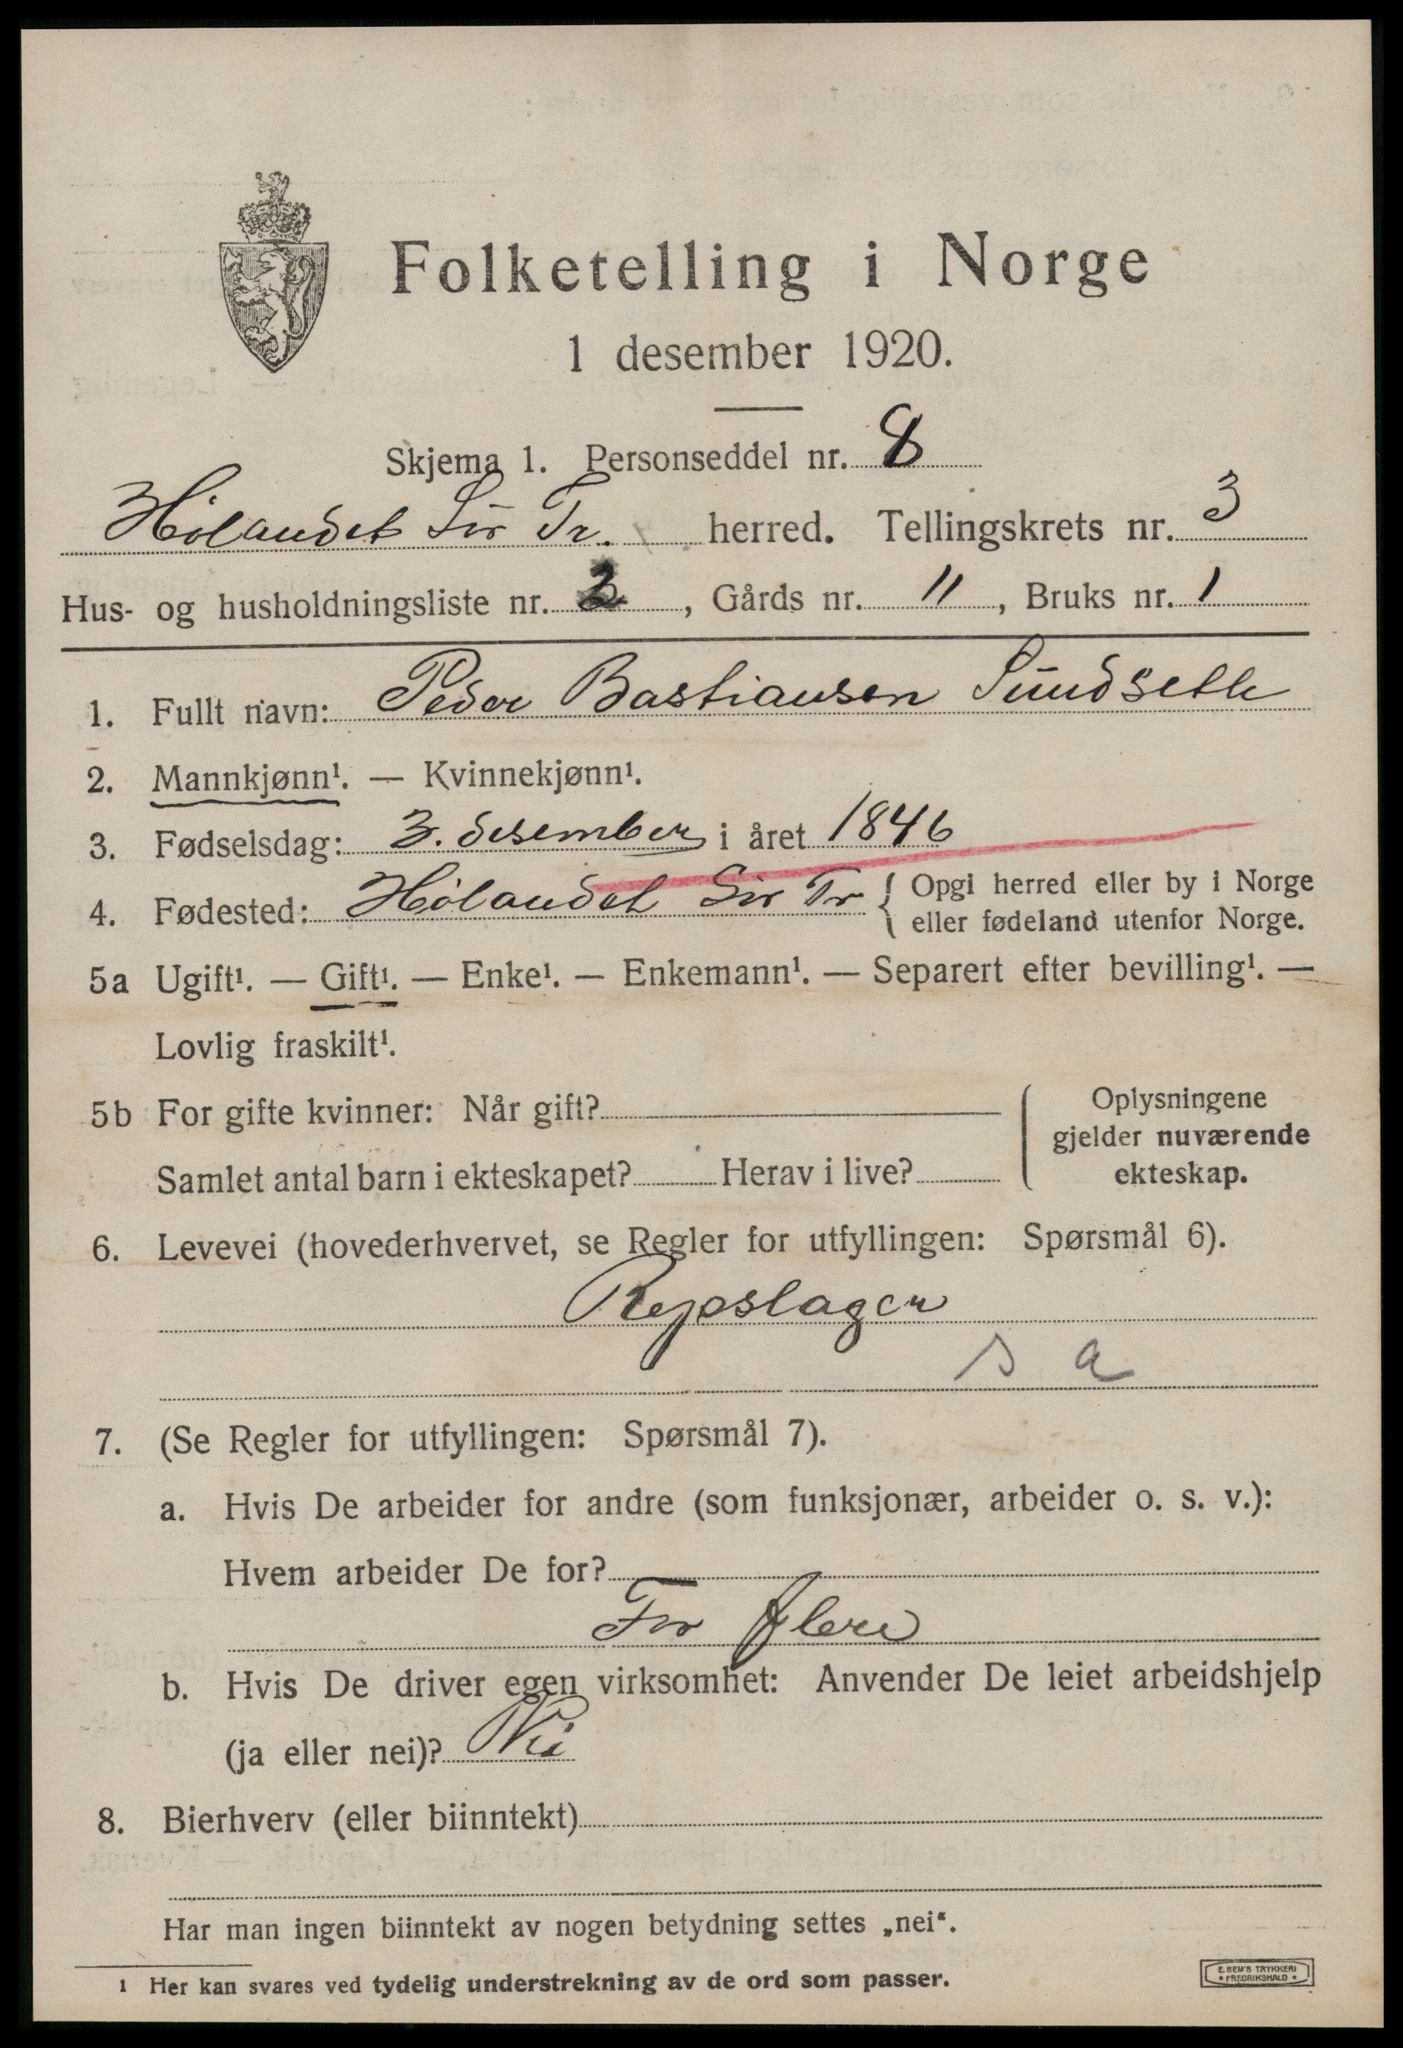 Folketelling i Norge
1 desember 1920.
Skjema 1. Personseddel nr. 8
Hølandet Sør Tr. herred. Tellingskrets nr. 3
Hus- og husholdningsliste nr. 2, Gårds nr. 11, Bruks nr. 1
1. Fullt navn: Peder Bastiansen Sundseth
2. Mannkjønn¹. — Kvinnekjønn¹.
3. Fødselsdag: 3. desember i året 1846
4. Fødested: Hølandet Sør Tr { Opgi herred eller by i Norge
eller fødeland utenfor Norge.
5a Ugift¹. — Gift¹. — Enke¹. — Enkemann¹. — Separert efter bevilling¹. —
Lovlig fraskilt¹.
5b For gifte kvinner: Når gift?
Samlet antal barn i ekteskapet? Herav i live?
Oplysningene
gjelder nuværende
ekteskap.
6. Levevei (hovederhvervet, se Regler for utfyllingen: Spørsmål 6).
Repslager
s a
7. (Se Regler for utfyllingen: Spørsmål 7).
a. Hvis De arbeider for andre (som funksjonær, arbeider o. s. v.):
Hvem arbeider De for?
For flere
b. Hvis De driver egen virksomhet: Anvender De leiet arbeidshjelp
(ja eller nei)? Nei
8. Bierhverv (eller biinntekt)
Har man ingen biinntekt av nogen betydning settes „nei“.
1 Her kan svares ved tydelig understrekning av de ord som passer.
E. SEM'S TRYKKERI
• FREDRIKSHALD •